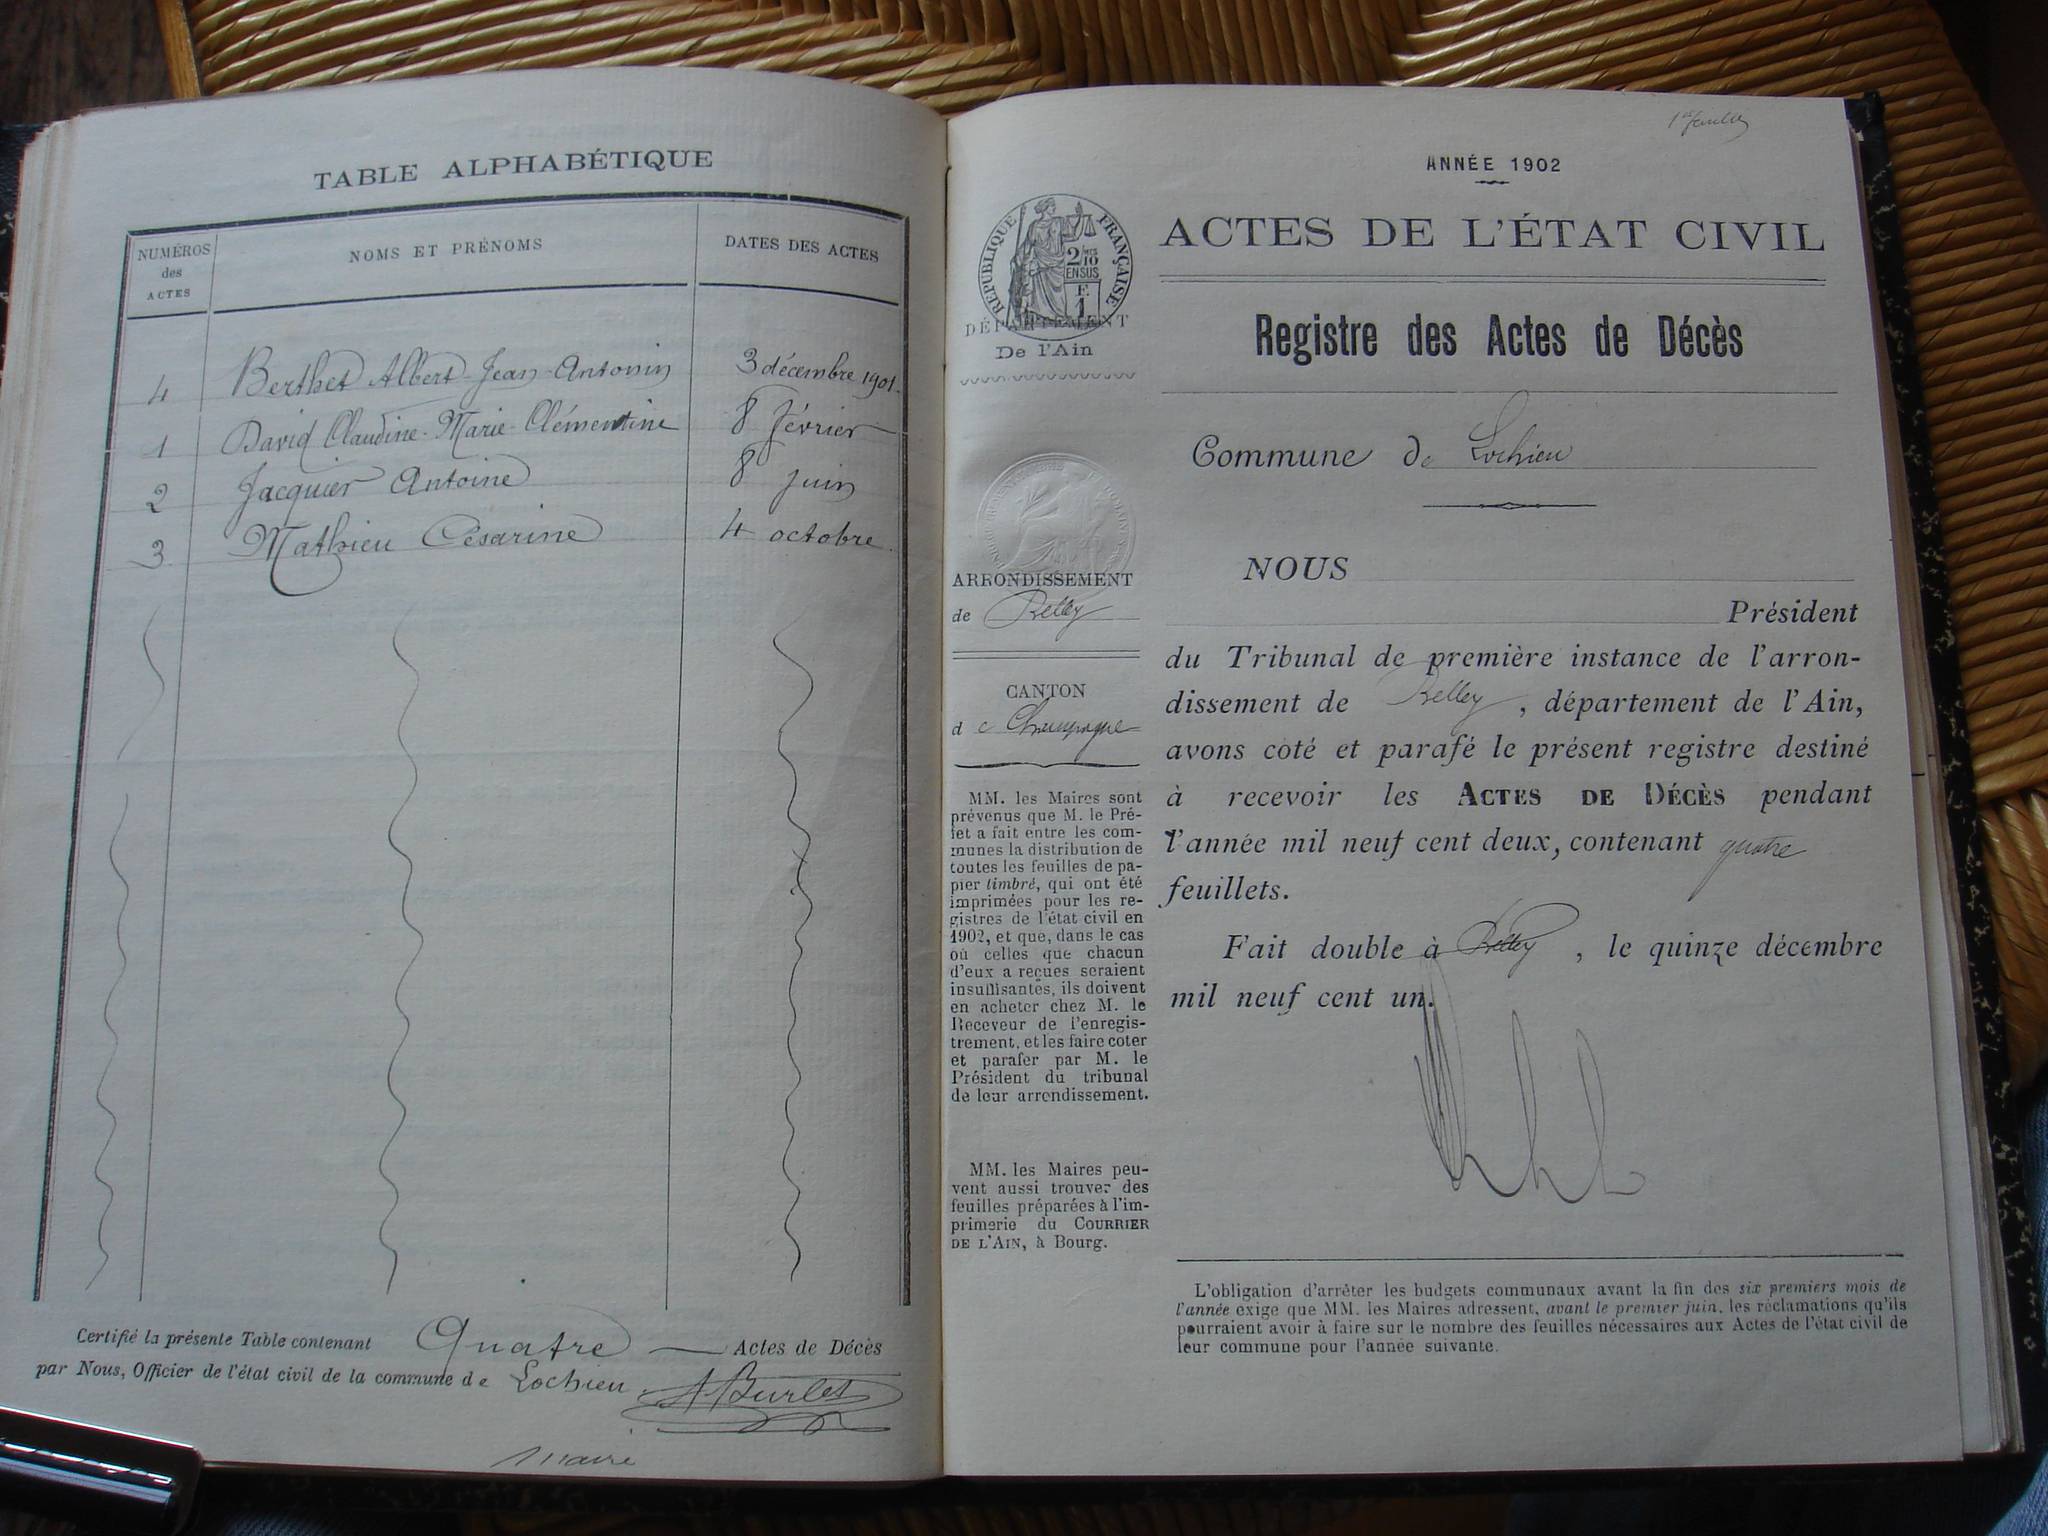 TABLE ALPHABÉTIQUE
NUMÉROS des ACTES
NOMS ET PRÉNOMS
DATES DES ACTES
4 Berthet Albert Jean Antonin 3 décembre 1901.
1 David Claudine-Marie-Clémentine 8 février
2 Jacquier Antoine 8 juin
3 Mathieu Césarine 4 octobre.
Certifié la présente Table contenant Quatre Actes de Décès
par Nous, Officier de l'état civil de la commune de Lochieu
A Burlet
Maire
1er feuillet
ANNÉE 1902
RÉPUBLIQUE FRANÇAISE
2/10
EN SUS
F.
1
DÉPARTEMENT
De l'Ain
ARRONDISSEMENT
de Belley
CANTON
de Champagne
MM. les Maires sont
prévenus que M. le Pré-
fet a fait entre les com-
munes la distribution de
toutes les feuilles de pa-
pier timbré, qui ont été
imprimées pour les re-
gistres de l'état civil en
1902, et que, dans le cas
où celles que chacun
d'eux a reçues seraient
insuffisantes, ils doivent
en acheter chez M. le
Receveur de l'enregis-
trement, et les faire coter
et parafer par M. le
Président du tribunal
de leur arrondissement.
MM. les Maires peu-
vent aussi trouver des
feuilles préparées à l'im-
primerie du COURRIER
DE L'AIN, à Bourg.
ACTES DE L'ÉTAT CIVIL
Registre des Actes de Décès
Commune de Lochieu
NOUS
Président
du Tribunal de première instance de l'arron-
dissement de Belley, département de l'Ain,
avons coté et parafé le présent registre destiné
à recevoir les ACTES DE DÉCÈS pendant
l'année mil neuf cent deux, contenant quatre
feuillets.
Fait double à Belley, le quinze décembre
mil neuf cent un.
L'obligation d'arrêter les budgets communaux avant la fin des six premiers mois de
l'année exige que MM. les Maires adressent, avant le premier juin, les réclamations qu'ils
pourraient avoir à faire sur le nombre des feuilles nécessaires aux Actes de l'état civil de
leur commune pour l'année suivante.